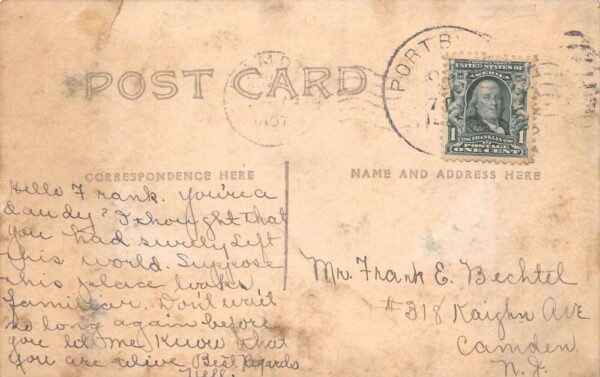 POST CARD
PORT B
UNITED STATES OF
AMERICA
1 1
POSTAGE
ONE CENT
CORRESPONDENCE HERE
NAME AND ADDRESS HERE
Hello Frank. You're a
dandy? I thought that
you had surely left
this world. Suppose
this place looks
familiar. Don't wait
so long again before
you let me know that
you are alive Best Regards
Mr. Frank E. Bechtel
#318 Kaighn Ave
Camden
N.J.